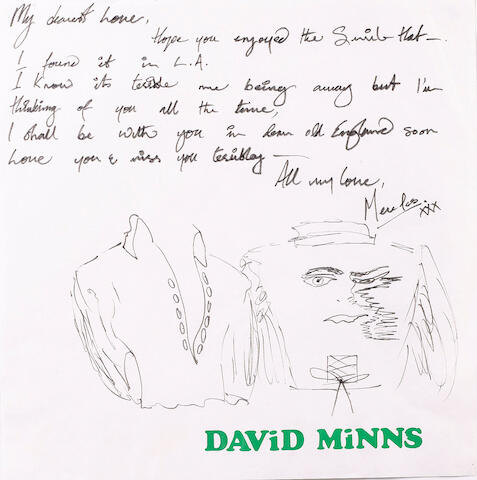 My dearest Love,
Hope you enjoyed the Smile Hat —
I found it in L.A.
I know its terible me being away but I'm
thinking of you all the time,
I shall be with you in dear old England soon
Love you & miss you teribley —
All my love,
xxx
DAViD MiNNS